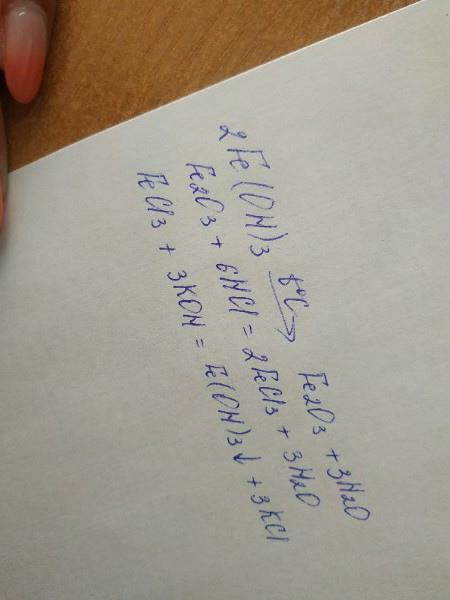 2Fe(OH)3 t°C→ Fe2O3 + 3H2O
Fe2O3 + 6HCl = 2FeCl3 + 3H2O
FeCl3 + 3KOH = Fe(OH)3↓ + 3KCl